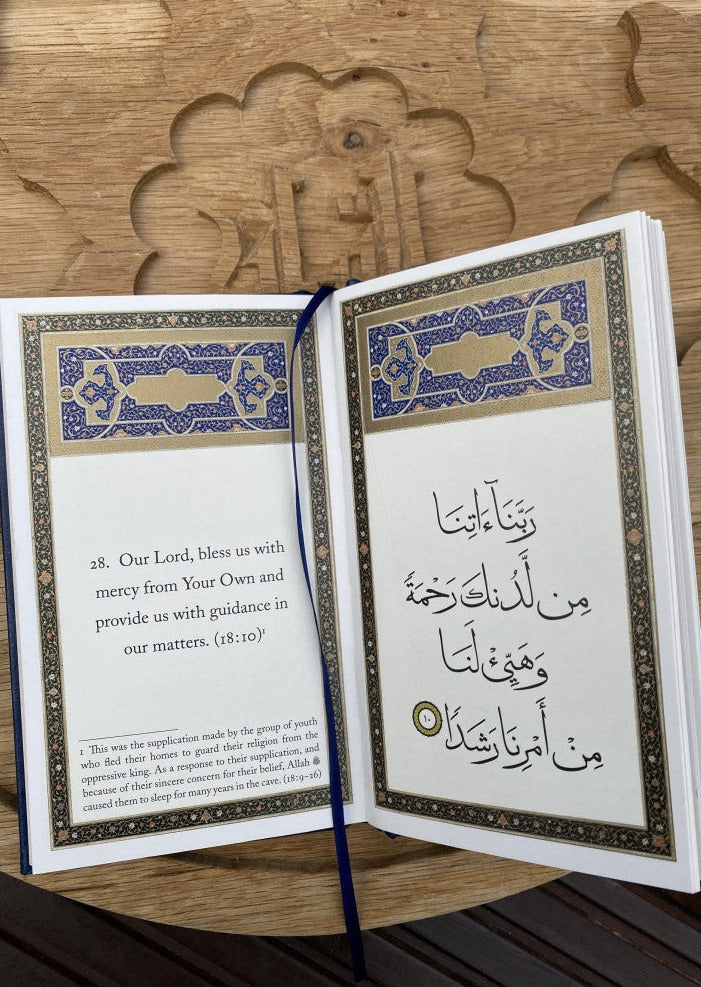 28. Our Lord, bless us with
mercy from Your Own and
provide us with guidance in
our matters. (18:10)¹
1 This was the supplication made by the group of youth
who fled their homes to guard their religion from the
oppressive king. As a response to their supplication, and
because of their sincere concern for their belief, Allah ﷻ
caused them to sleep for many years in the cave. (18:9–26)
رَبَّنَآ ءَاتِنَا
مِن لَّدُنكَ رَحْمَةً
وَهَيِّئْ لَنَا
مِنْ أَمْرِنَا رَشَدًا ١٠